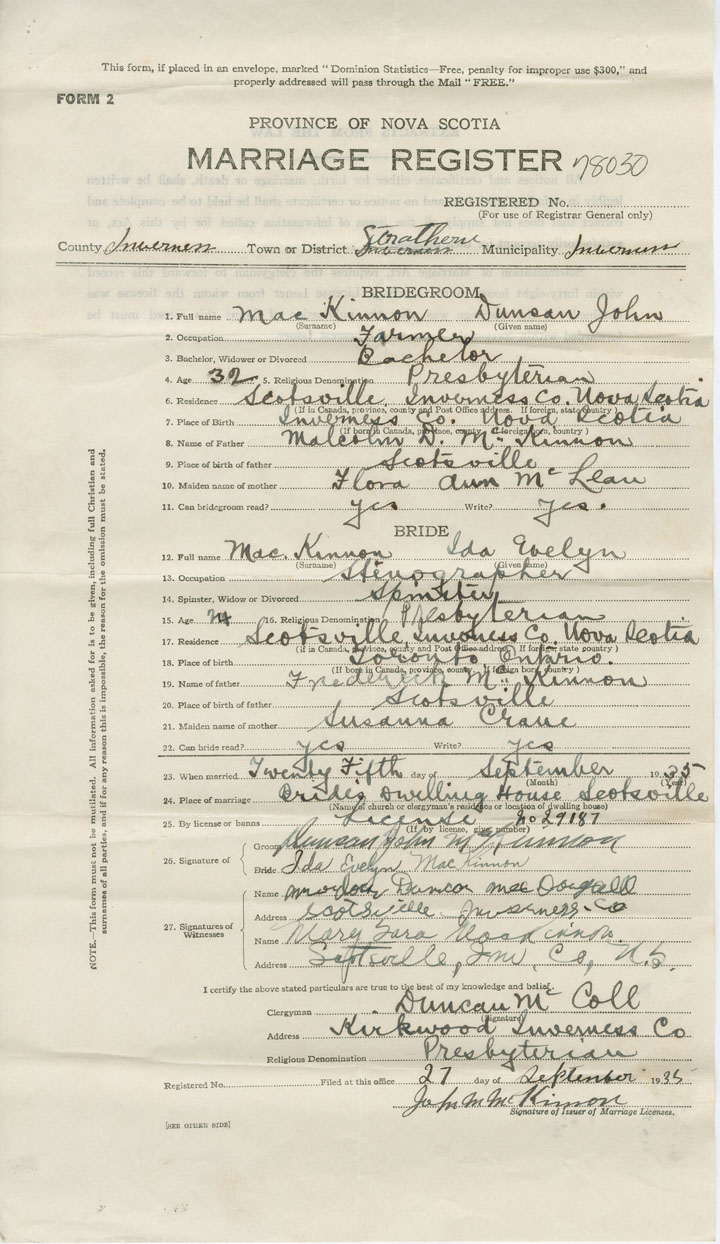 This form, if placed in an envelope, marked "Dominion Statistics—Free, penalty for improper use $300," and
properly addressed will pass through the Mail "FREE."
FORM 2
PROVINCE OF NOVA SCOTIA
MARRIAGE REGISTER 78030
REGISTERED No.
(For use of Registrar General only)
County Inverness Town or District Strathern Inverness Municipality Inverness
BRIDEGROOM
1. Full name Mac Kinnon Duncan John
(Surname) (Given name)
2. Occupation Farmer
3. Bachelor, Widower or Divorced Bachelor
4. Age 32 5. Religious Denomination Presbyterian
6. Residence Scotsville, Inverness Co. Nova Scotia
(If in Canada, province, county and Post Office address. If foreign, state country)
7. Place of Birth Inverness Co. Nova Scotia
(If born in Canada, province, county. If foreign born, country)
8. Name of Father Malcolm D. Mc Kinnon
9. Place of birth of father Scotsville
10. Maiden name of mother Flora Ann Mc Lean
11. Can bridegroom read? yes Write? yes.
BRIDE
12. Full name Mac. Kinnon Ida Evelyn
(Surname) (Given name)
13. Occupation Stenographer
14. Spinster, Widow or Divorced Spinster
15. Age 24 16. Religious Denomination Presbyterian
17. Residence Scotsville, Inverness Co. Nova Scotia
(if in Canada, province, county and Post Office address. If foreign state country)
18. Place of birth Toronto Ontario.
(If born in Canada, province, county. If foreign born, country)
19. Name of father Frederick Mc Kinnon
20. Place of birth of father Scotsville
21. Maiden name of mother Susanna Crane
22. Can bride read? yes Write? yes
23. When married Twenty Fifth day of September 1935
(Month) (Year)
24. Place of marriage Brides Dwelling House Scotsville
(Name of church or clergyman's residence or location of dwelling house)
25. By license or banns License No 29187
(If by license, give number)
26. Signature of
Groom Duncan John McKinnon
Bride Ida Evelyn MacKinnon
27. Signatures of Witnesses
Name Duncan MacDougall
Address Scotsville Inverness Co
Name Mary MacKinnon.
Address Scotsville, Inv, Co, N.S.
I certify the above stated particulars are true to the best of my knowledge and belief.
Clergyman Duncan Mc Coll
(Signature)
Address Kirkwood Inverness Co
Religious Denomination Presbyterian
Registered No. Filed at this office 27 day of September 1935
John M McKinnon
Signature of Issuer of Marriage Licenses.
[SEE OTHER SIDE]
NOTE.—This form must not be mutilated. All information asked for is to be given, including full Christian and
surnames of all parties, and if for any reason this is impossible, the reason for the omission must be stated.